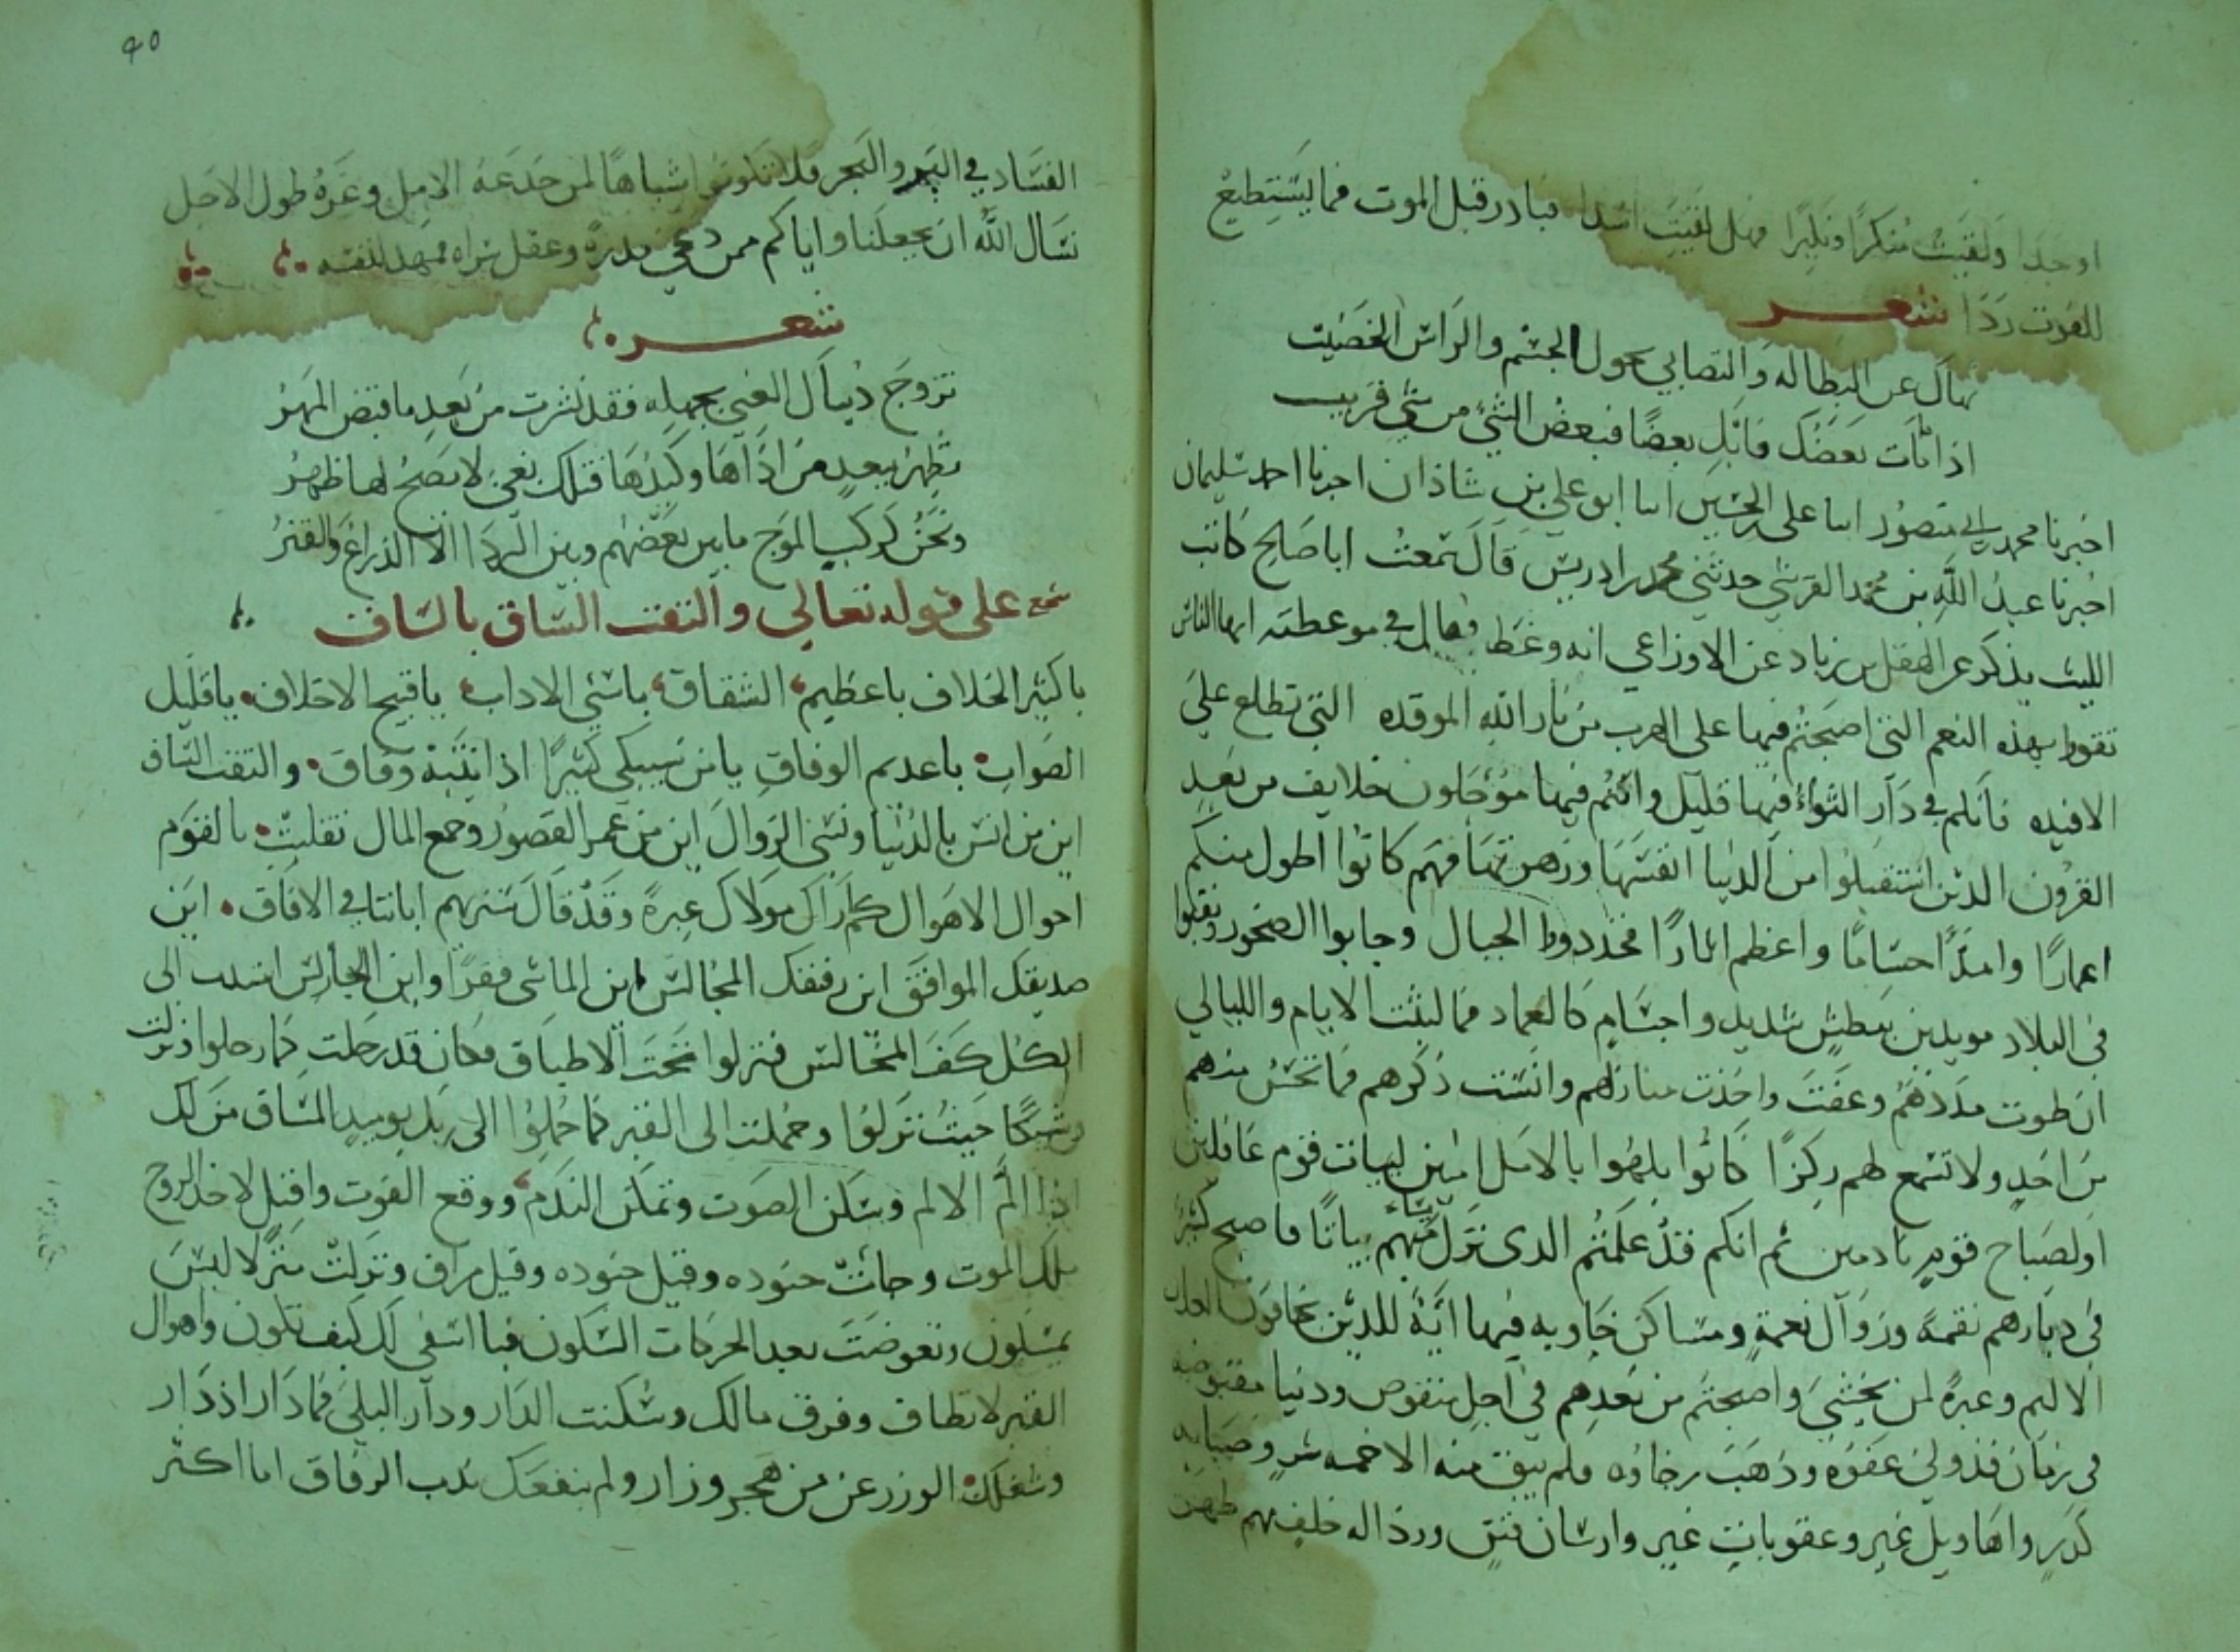 او جدا ولقيت منكرا ونكيرا فهل لقيت اسدا فبادر قبل الموت فما يستطيع
للفوت ردا شعر
نهاك عن البطاله والتصابي نحول الجسم والراس الخضيب
اذا مات بعضك فابك بعضا فبعض الشي من شي قريب
اخبرنا محمد بن ابي منصور انبا على بن الحسين انبا ابو علي بن شاذان اخبرنا احمد سليمان
اخبرنا عبد الله بن محمد القرشي حدثني محمد بن ادريس قال سمعت ابا صالح كاتب
الليث يذكر عن الهقل بن زياد عن الاوزاعي انه وعظ فقال في موعظته ايها الناس
تقووا بهذه النعم التى اصبحتم فيها على الهرب من نار الله الموقده التى تطلع على
الافيده فانكم في دار الثواء فيها قليل وانتم فيها مؤجلون خلايف من بعد
القرون الذين استقبلوا من الدنيا انفسها وزهرتها فهم كانوا اطول منكم
اعمارا وامد اجساما واعظم اثارا فخددوا الجبال وجابوا الصخور ونقبوا
فى البلاد مويدين ببطش شديد واجسام كالعماد فما لبثت الايام والليالى
ان طوت مددهم وعفت واخذت منازلهم وانست ذكرهم فما تحس منهم
من احد ولا تسمع لهم ركزا كانوا يلهوا بالامل امنين لبيات قوم غافلين
او لصباح قوم نادمين ثم انكم قد علمتم الذى نزل بساحتهم بياتا فاصبح كثير
في ديارهم نقمة وزوال نعمة ومساكن خاويه فيها اية للذين يخافون العذاب
الاليم وعبرة لمن يخشى واصبحتم من بعدهم في اجل منقوص ودنيا مقبوضه
في زمان قد ولى عفوه وذهب رخاؤه فلم يبق منه الا حمه شر وصبابه
كدر واهاويل غير وعقوبات غير وارسان فتن ورذاله خلف بهم ظهر
40
الفساد في البر والبحر فلا تكونوا اشباها لمن خدعه الامل وغره طول الاجل
نسال الله ان يجعلنا واياكم ممن وعى نذره وعقل سراه فمهد لنفسه
شعر
تزوج دنياك الغبي بجهله فقد نشرت من بعد ما قبض المهر
تطهر ببعد من اذاها وكيدها فتلك بغى لا يصح لها ظهر
ونحن كركب الموج ما بين بعضهم وبين الردا الا الذراع والفتر
سجع على قوله تعالى والتفت الساق بالساق
يا كثير الخلاف يا عظيم الشقاق يا سئ الاداب يا قبيح الاخلاق يا قليل
الصواب يا عديم الوفاق يا من سيبكى كثيرا اذا انتبه وفاق والتفت الساق
اين من انس بالدنيا ونسى الزوال اين من عمر القصور وجمع المال تقلبت بالقوم
احوال الاهوال كم اراك مولاك عبرة وقد قال سنريهم اياتنا في الافاق اين
صديقك الموافق اين رفيقك المجالس اين الماشى فقرا واين الجالس امتدت الى
الكل كف المخالس فنزلوا تحت الاطباق فكان قد رحلت كما رحلوا ونزلت
وشيكا حيث نزلوا وحملت الى القبر كما حملوا الى ربك يوميذ المساق من لك
اذا الم الالم وسكن الصوت وتمكن الندم ووقع الفوت واقبل لاخذ الروح
ملك الموت وجائت جنوده وقيل من راق ونزلت منزلا ليس
بمسكون وتعوضت بعد الحركات السكون فيا اسفى لك كيف تكون واهوال
القبر لا تطاق وفرق مالك وسكنت الدار ودار البلى فما دار اذ دار
وشغلك الوزر عن من هجر وزار ولم ينفعك ندب الرفاق اما اكثر